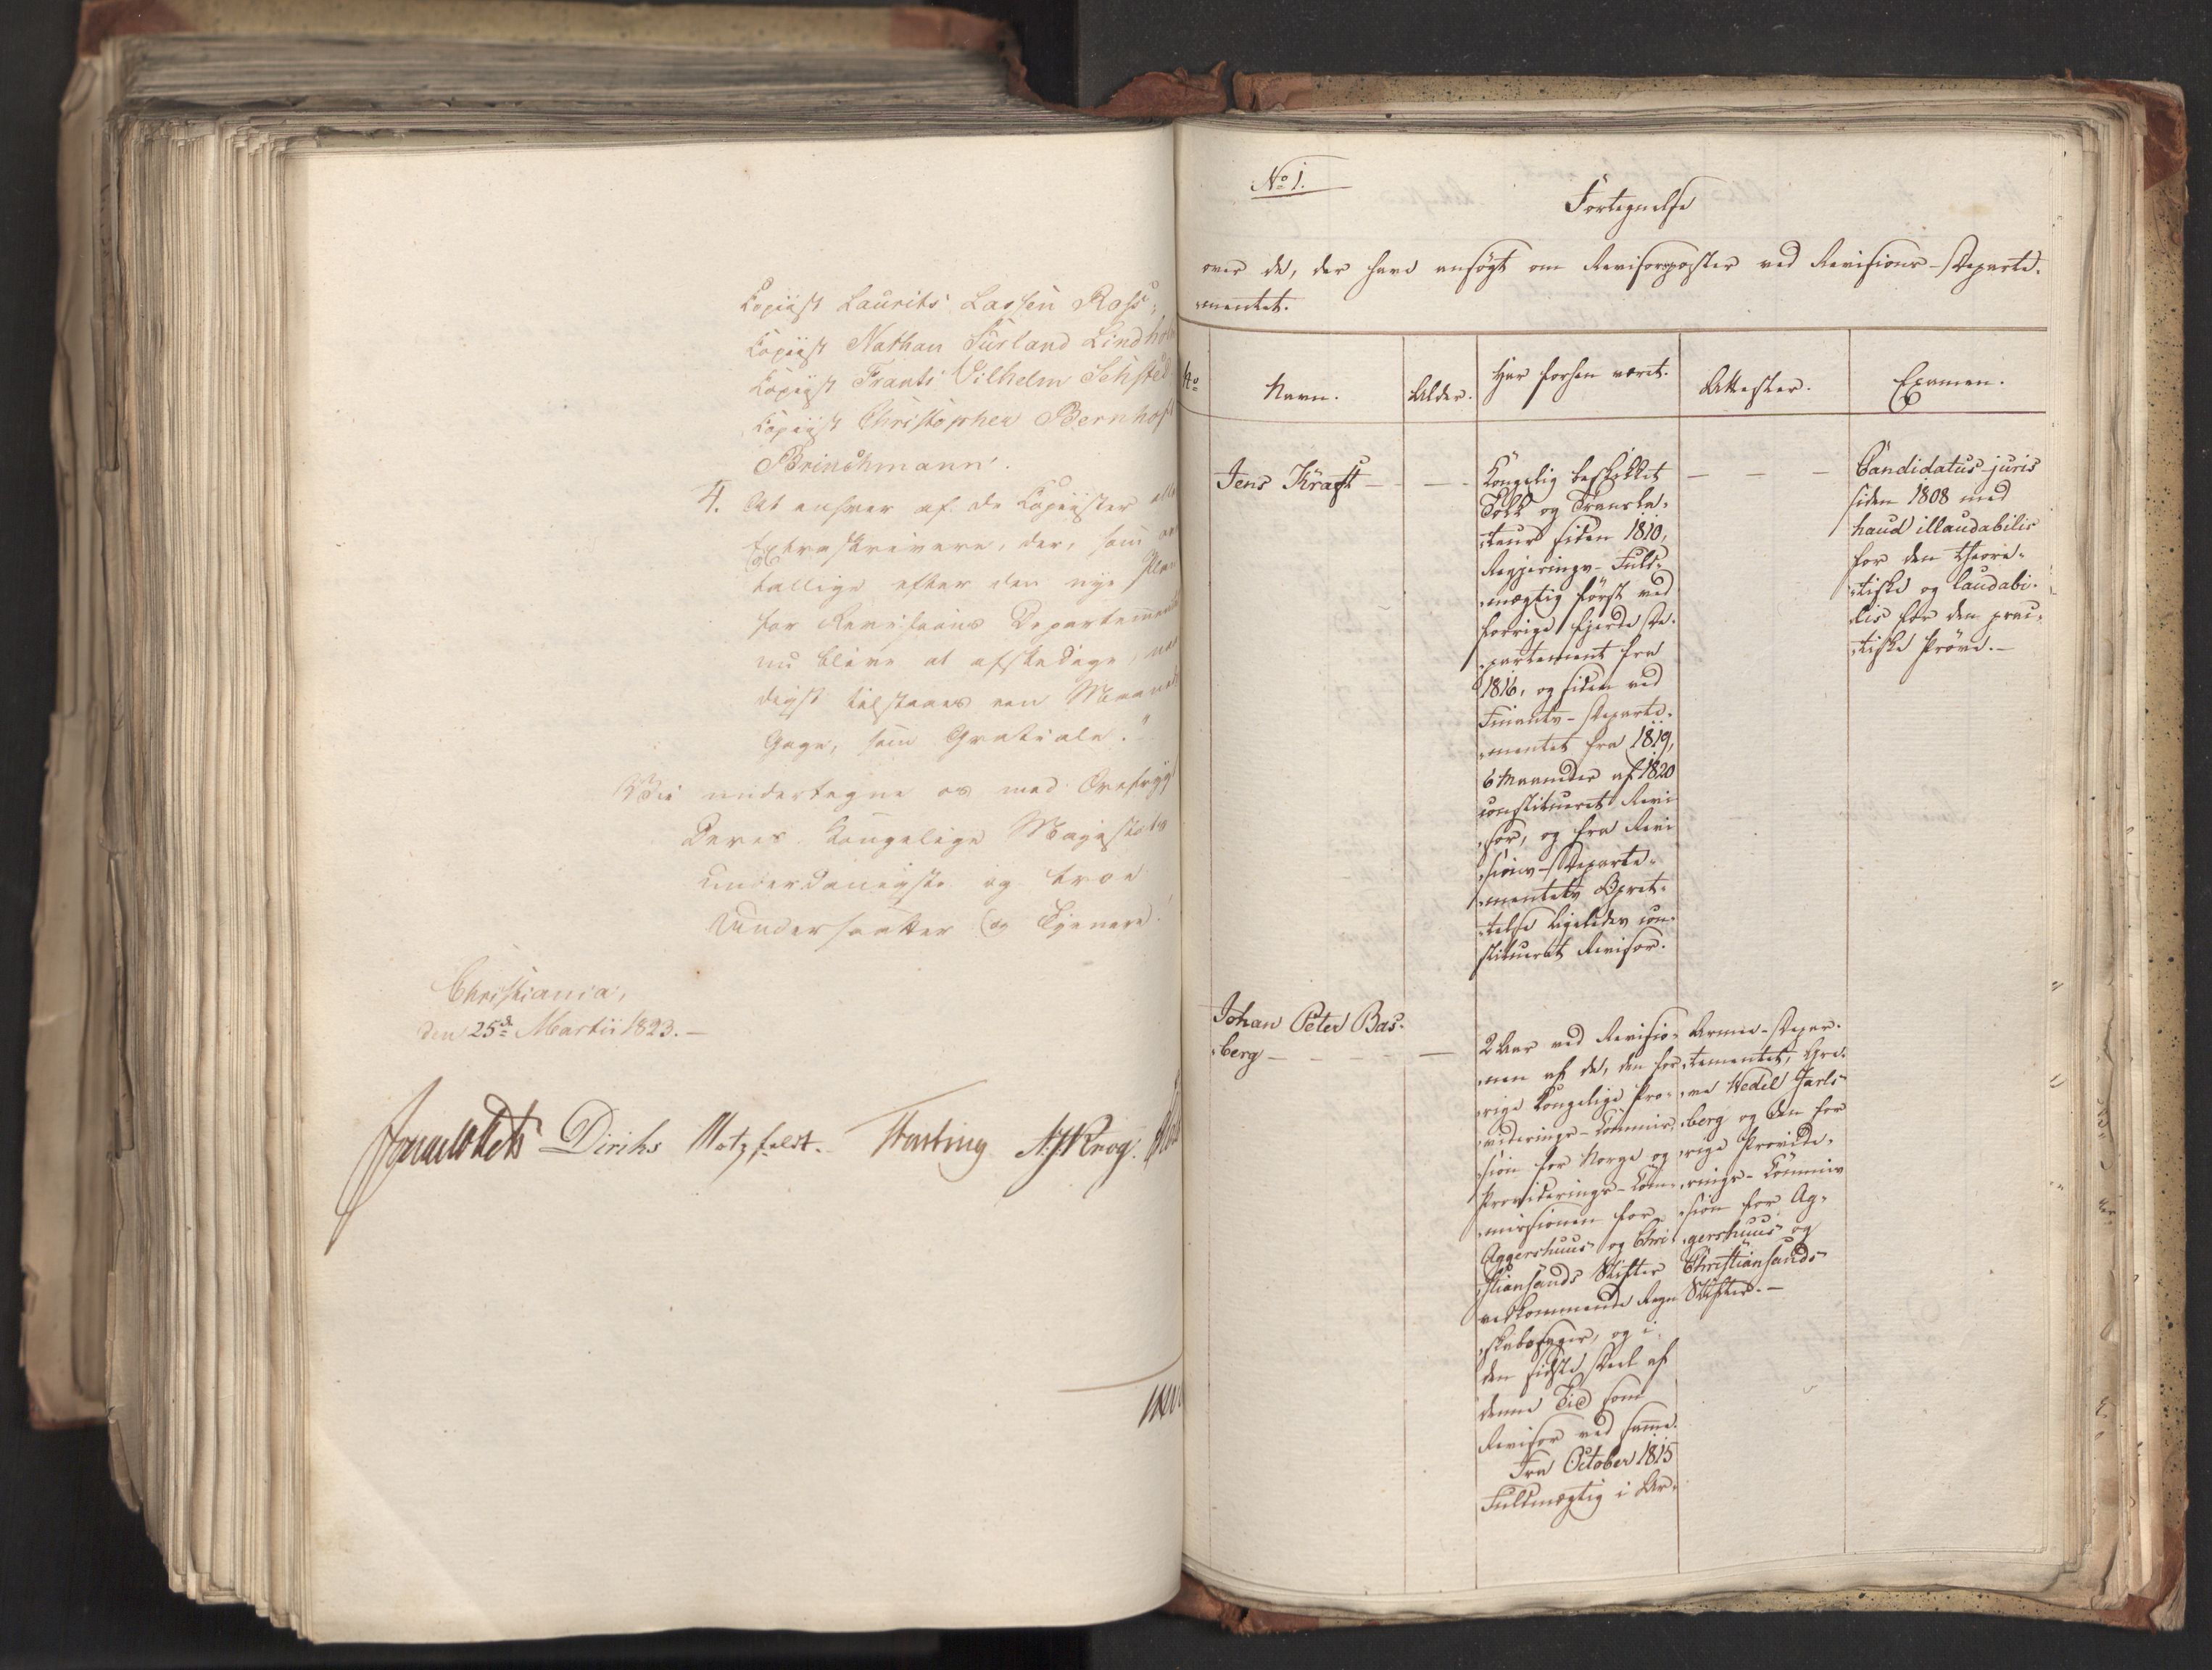 Copiist Laurits Lassen Ross;
Copiist Nathan Surland Lindholm
Copiist Frants Vilhelm Sehsted
Copiist Christopher Bernhoft
Brinchmann.
4. At enhver af de Copiister
Extraskrivere, der, som
tallige efter den nye Plan
for Revisions Departementet
nu blive at afskedige,
digst tilstaaes een Maaneds
Gage, som Gratiale."
Vi undertegne os med Ærefrygt
Deres Kongelige Majestæts
underdanigste og troe
Undersaatter og Tjenere.
Christiania,
den 25de Martii 1823.
Diriks Motzfeldt. Fasting A:Krog.
No 1.
Fortegnelse
over de, der have ansøgt om Revisorposter ved Revisions-Departe-
mentet.
No Navn. Alder. Har forhen været. Attester. Examen.
Jens Kraft - - -
Kongelig beskikket
Tolk og Transla-
teur siden 1810,
Regjerings-Fuld-
mægtig først ved
forrige fjerde De-
partement fra
1816, og siden ved
Finants-Departe-
mentet fra 1819,
6 Maaneder af 1820
constitueret Revi-
sor, og fra Revi-
sions-Departe-
mentets Opret-
telse ligeledes con-
stitueret Revisor.
Candidatus juris
siden 1808 med
haud illaudabilis
for den theore-
tiske og laudabi-
lis for den prac-
tiske Prøve. -
Johan Peter Bas-
berg - - - - -
2 Aar ved Revisio-
nen af de, den for-
rige Kongelige Pro-
viderings-Commis-
sion for Norge og
Providerings-Com-
missionen for
Aggershuus og Chri-
stiansands Stifter
vedkommende Regn-
skabssager, og i
den sidste Deel af
denne Tid som
Revisor ved samme.
Fra October 1815
Fuldmægtig i Ar-
Armee-Depar-
tementet, Gre-
ve Wedel Jarls-
berg og den for-
rige Provide-
rings-Commis-
sion for Ag-
gershuus og
Christiansands
Stifter. -